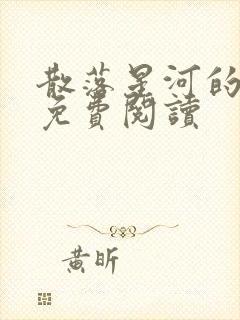 散落星河的
免費閱讀
黃昕